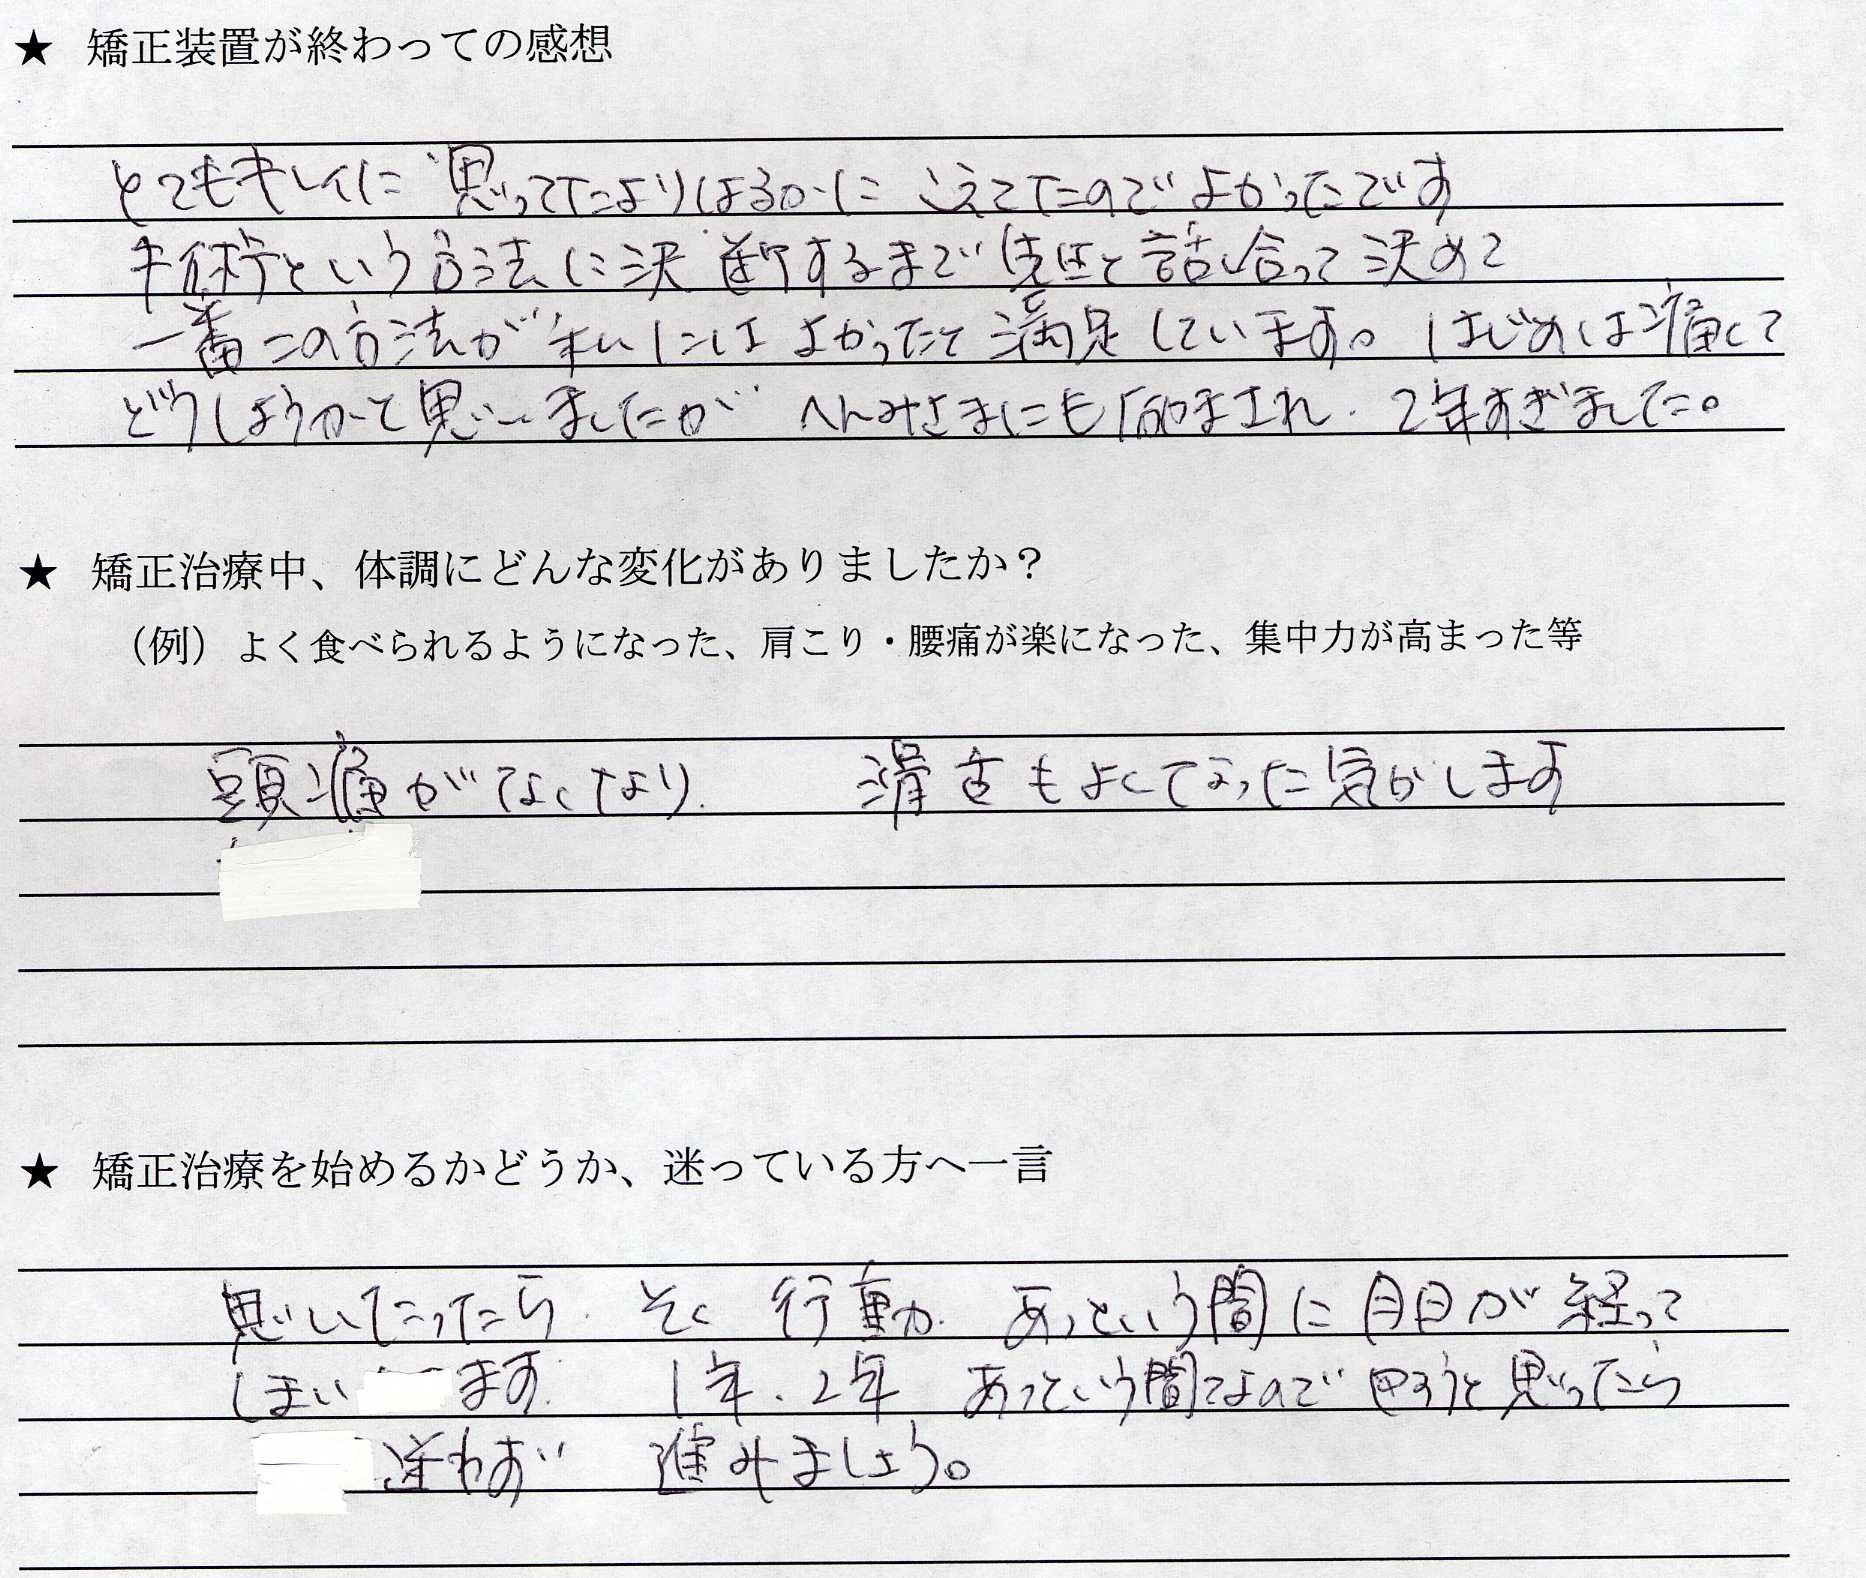 ★ 矯正装置が終わっての感想
とてもキレイに 思ってたよりはるかに こえてたのでよかったです
手術という方法に決断するまで先生と話し合って決めて
一番この方法が私にはよかったと満足しています。はじめは痛くて
どうしようかと思いましたが へんみさまにも励まされ. 2年すぎました。
★ 矯正治療中、体調にどんな変化がありましたか?
（例）よく食べられるようになった、肩こり・腰痛が楽になった、集中力が高まった等
頭痛がなくなり. 滑舌もよくなった気がします
★ 矯正治療を始めるかどうか、迷っている方へ一言
思いたったら. そく 行動. あっという間に月日が経って
しまい ます. 1年.2年 あっという間なので やろうと思ったら
迷わず 進みましょう。